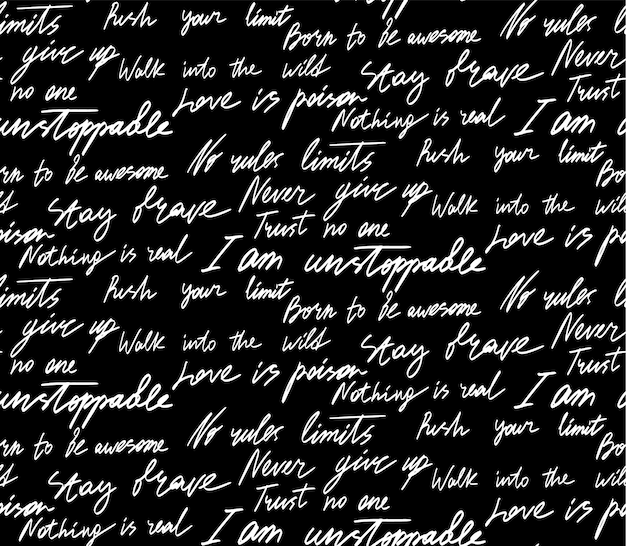 imits Push your limit Born to be awesome No rules l
give up Walk into the wild Stay brave Never
no one Love is poison Nothing is real Trust
unstoppable I am u
rn to be awesome No rules limits Push your limit Bo
d Stay brave Never give up Walk into the wil
oison Nothing is real Trust no one Love is po
I am unstoppable
imits Push your limit Born to be awesome No rules l
give up Walk into the wild Stay brave Never
no one Love is poison Nothing is real Trust
unstoppable I am u
rn to be awesome No rules limits Push your limit Bo
d Stay brave Never give up Walk into the wil
oison Nothing is real Trust no one Love is po
I am unstoppable